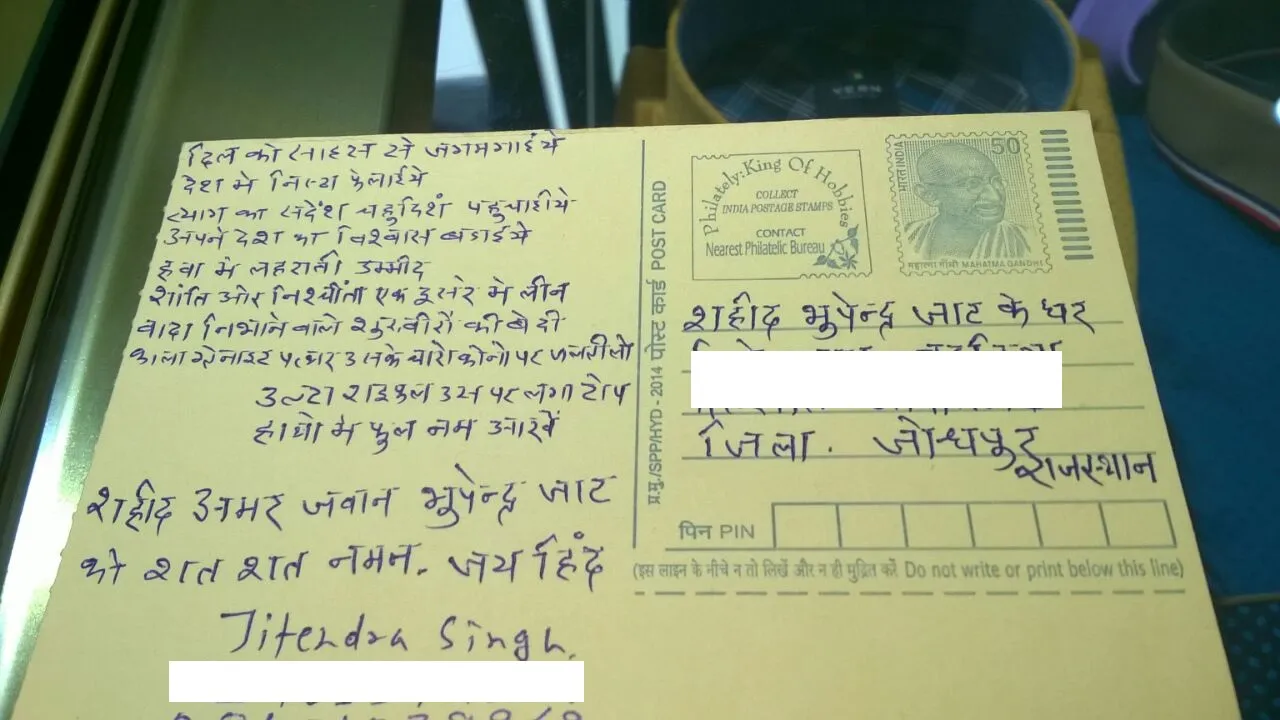 दिल को साहस से जगमगाईये
देश मे निष्ठा फैलाईये
त्याग का संदेश चहुदिशं पहुचाईये
अपने देश का विश्वास बढाईये
हवा मे लहराती उम्मीद
शांति और निश्चींता एक दुसरे मे लीन
वादा निभाने वाले शुरवीरों की बेदी
काला ग्रेनाइट पत्थर उसके चारो कोनो पर
उल्टा राइफल उस पर लगा टोप
हाथो मे फुल नम आखें
शहीद अमर जवान भुपेन्द्र जाट
को शत शत नमन. जय हिंद
Jitendra Singh.
प्र.मु./SPP/HYD - 2014 पोस्ट कार्ड POST CARD
Philately: King Of Hobbies
COLLECT
INDIA POSTAGE STAMPS
CONTACT
Nearest Philatelic Bureau
भारत INDIA
50
महात्मा गाँधी MAHATMA GANDHI
शहीद भुपेन्द्र जाट के घर
जिला. जोधपुर
राजस्थान
पिन PIN
(इस लाइन के नीचे न तो लिखें और न ही मुद्रित करें Do not write or print below this line)